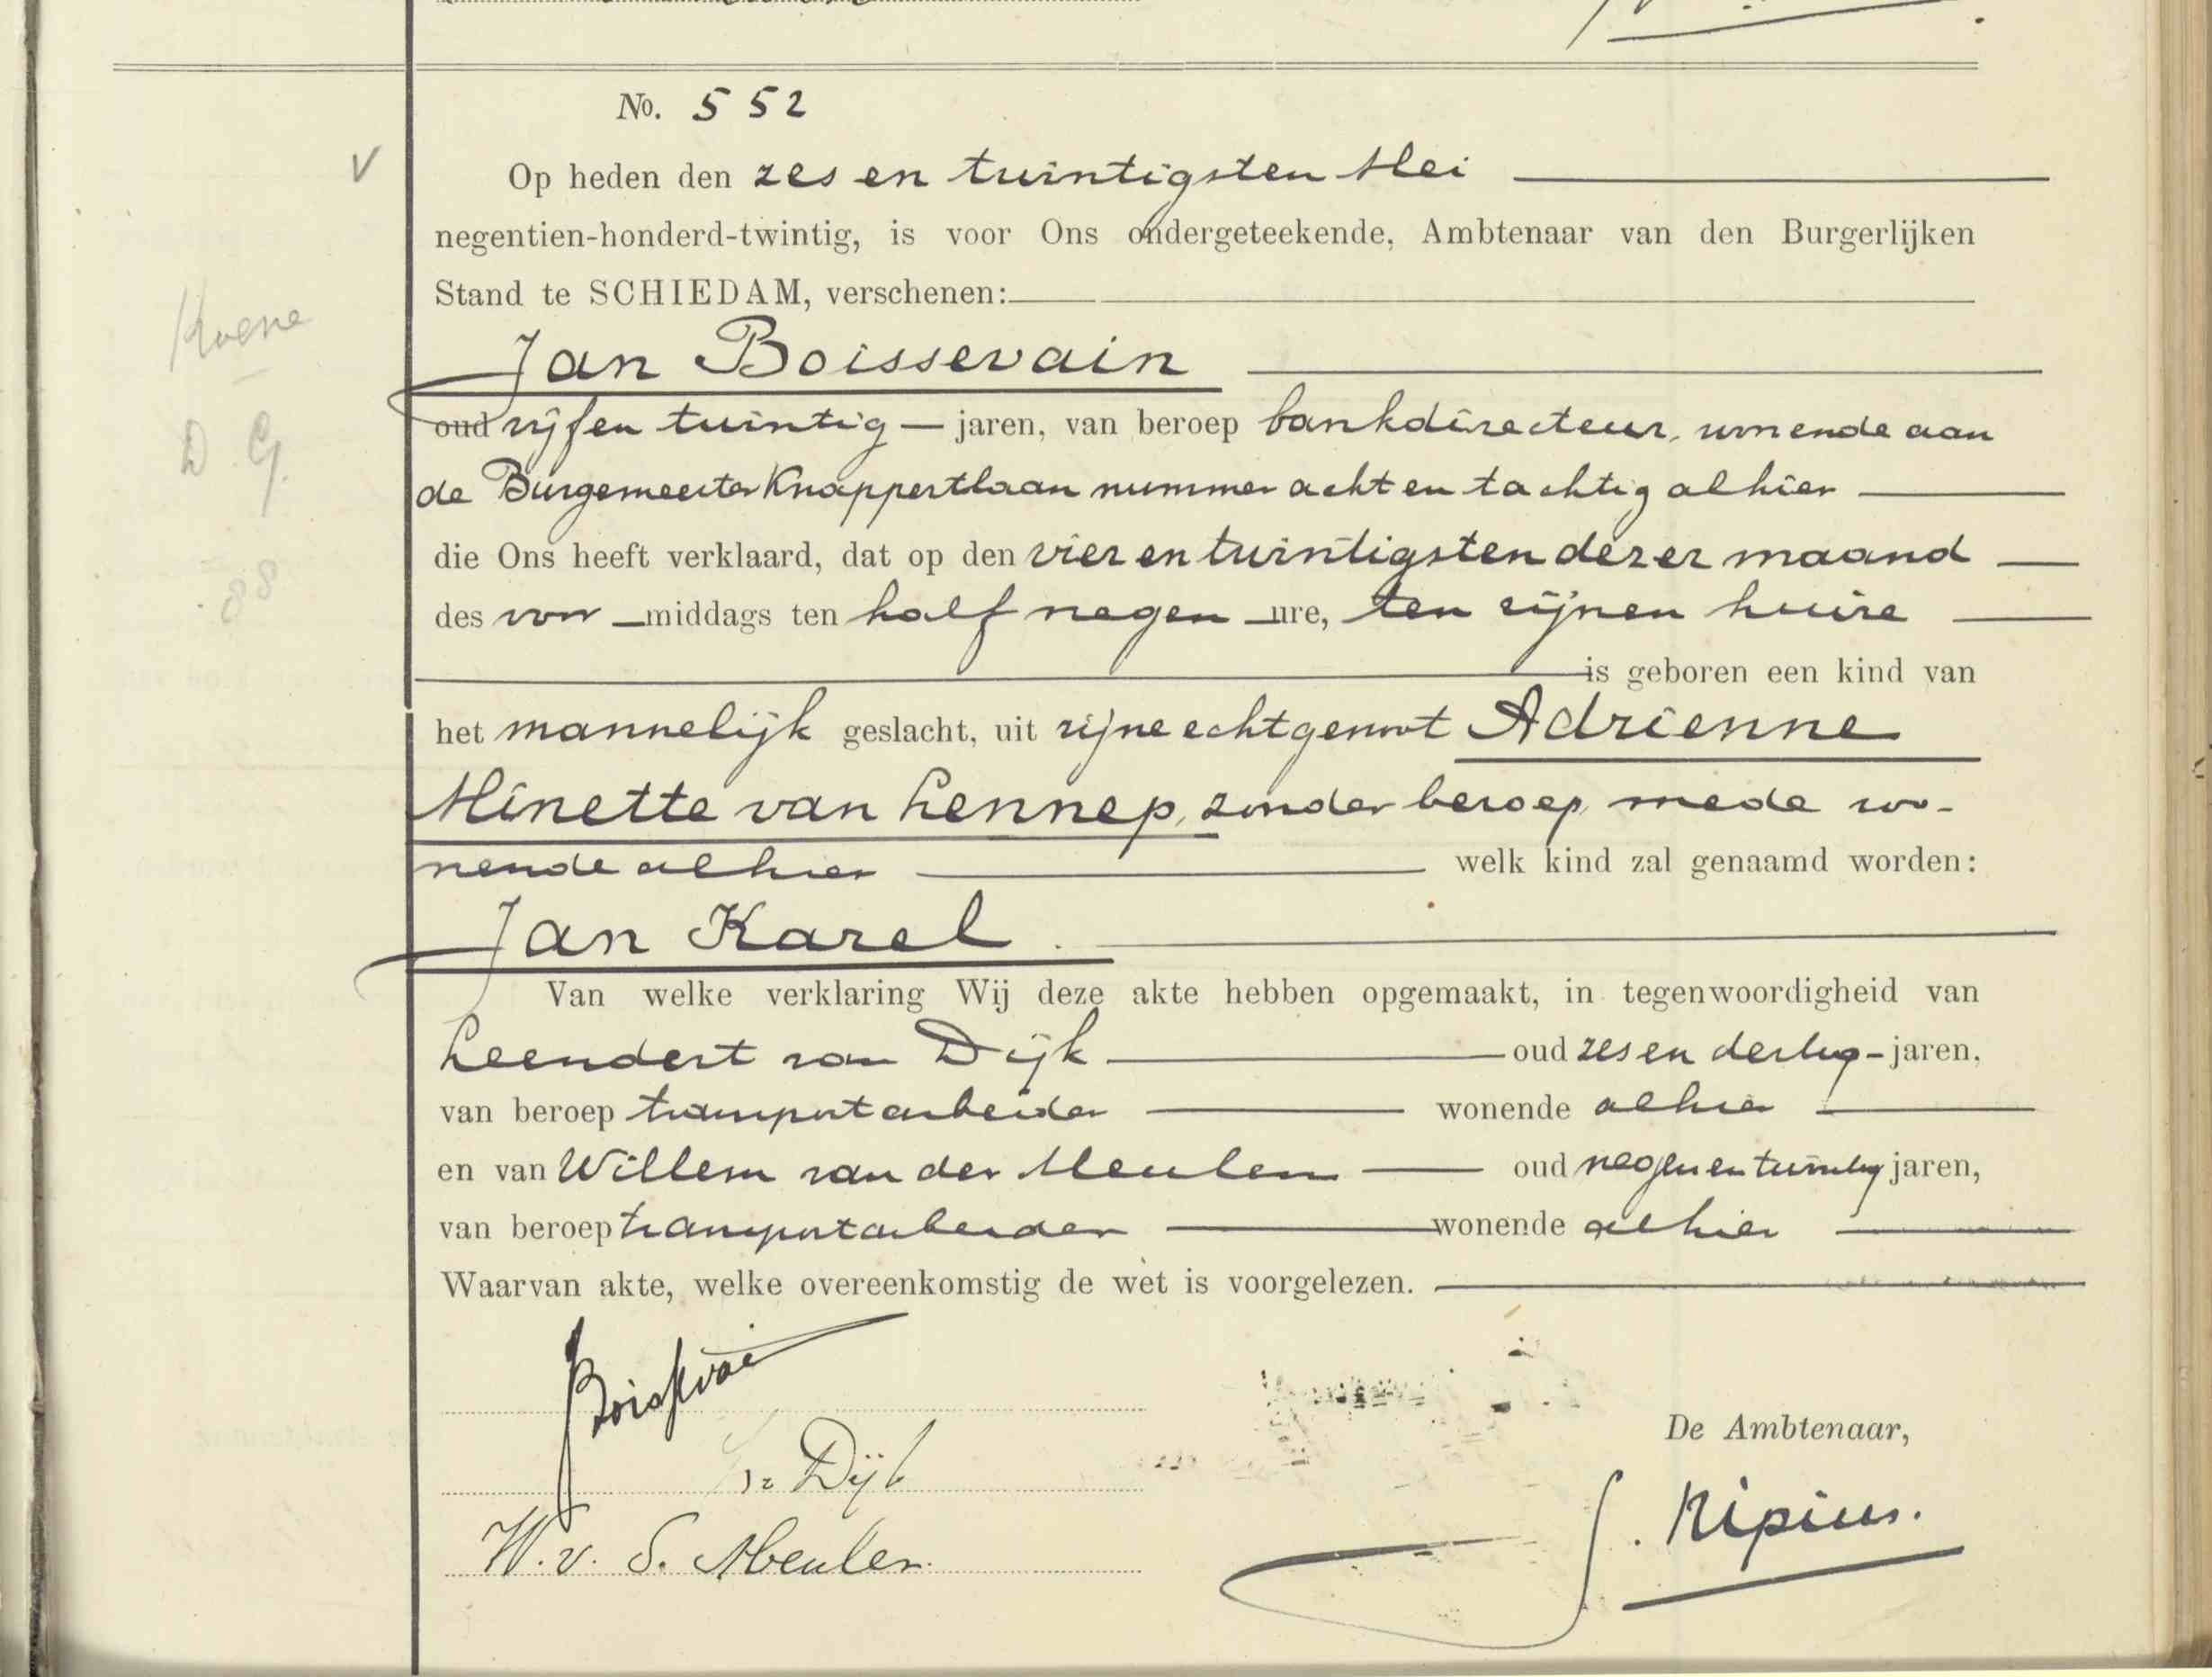 No. 552
V
Op heden den zes en twintigsten Mei
negentien-honderd-twintig, is voor Ons ondergeteekende, Ambtenaar van den Burgerlijken
Stand te SCHIEDAM, verschenen:
Jan Boissevain
oud vijf en twintig — jaren, van beroep bankdirecteur, wonende aan
de Burgemeester Knappertlaan nummer acht en tachtig alhier
die Ons heeft verklaard, dat op den vier en twintigsten dezer maand
des voor middags ten half negen ure, ten zijnen huize
is geboren een kind van
het mannelijk geslacht, uit zijne echtgenoot Adrienne
Minette van Lennep, zonder beroep, mede wo-
nende alhier welk kind zal genaamd worden:
Jan Karel.
Van welke verklaring Wij deze akte hebben opgemaakt, in tegenwoordigheid van
Leendert van Dijk oud zes en dertig - jaren,
van beroep transportarbeider wonende alhier
en van Willem van der Meulen oud negen en twintig jaren,
van beroep transportarbeider wonende alhier
Waarvan akte, welke overeenkomstig de wet is voorgelezen.
D. G.
88
Boissevain
De Ambtenaar,
Dijk
W. v. d. Meulen.